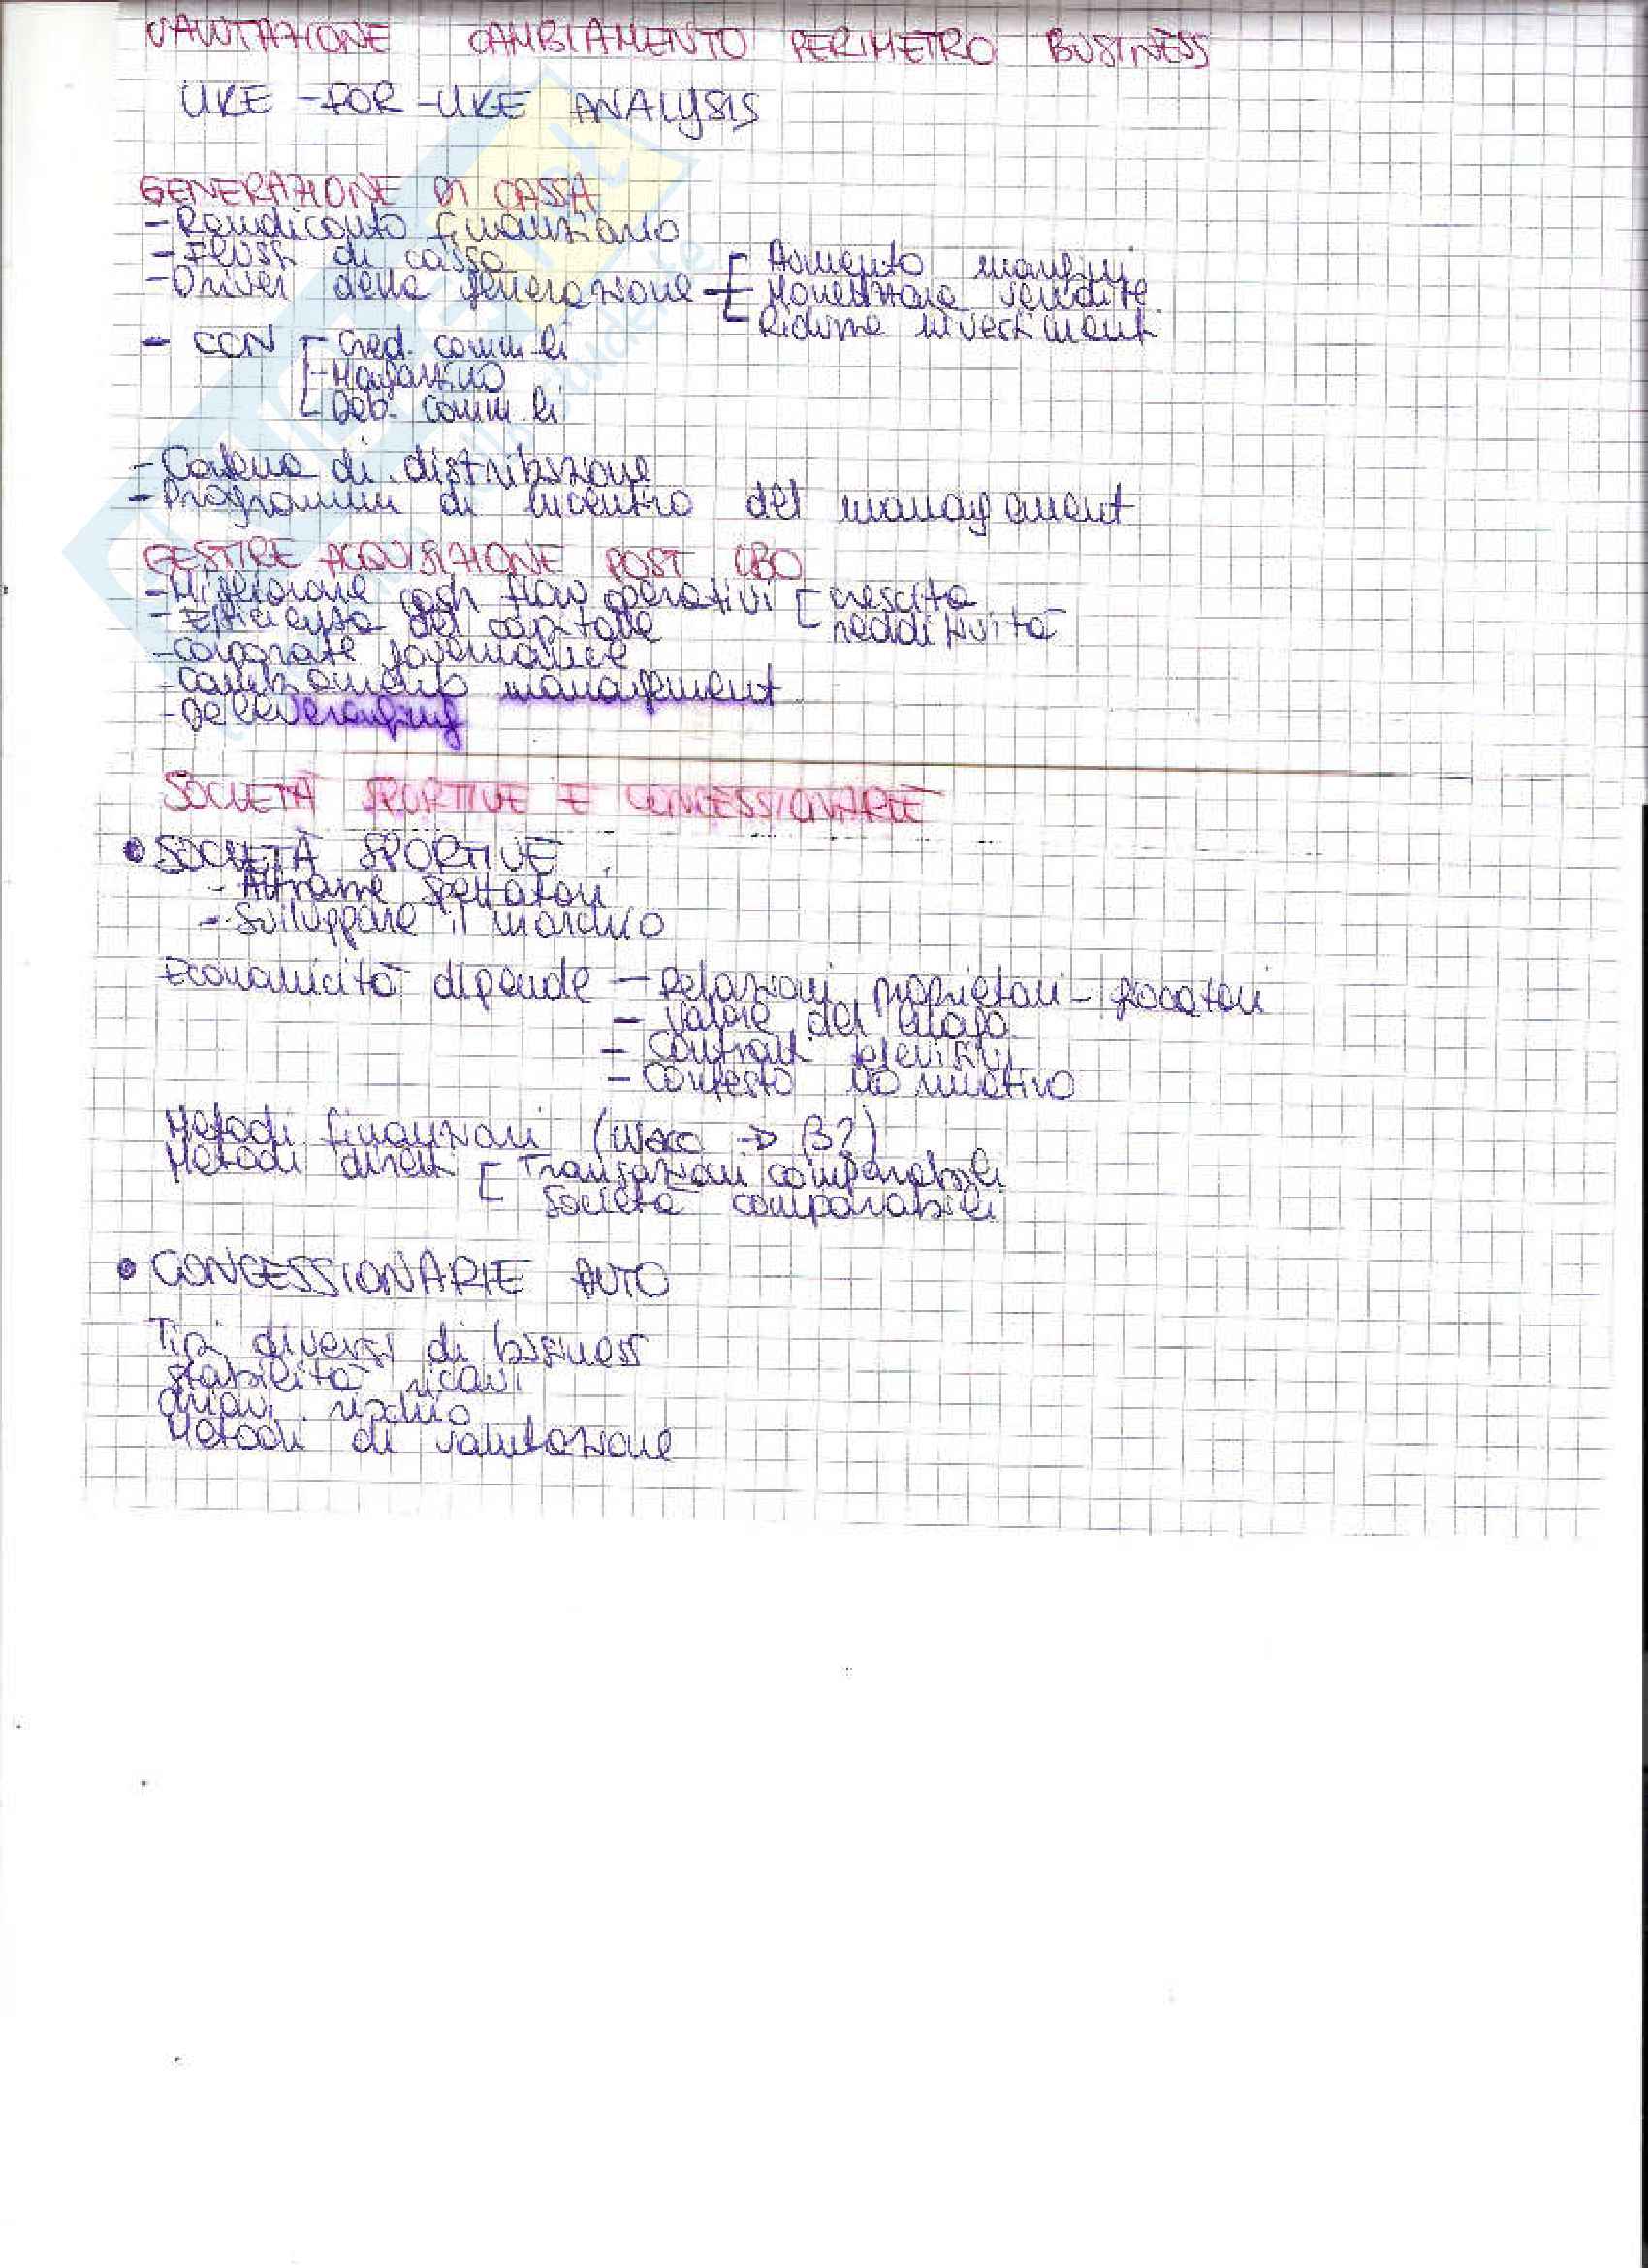 VALUTAZIONE CAMBIAMENTO PERIMETRO BUSINESS
LIKE-FOR-LIKE ANALYSIS
GENERAZIONE DI CASSA
- Rendiconto finanziario
- Flussi di cassa
- Driver della generazione
Aumento margini
Monetizzare vendite
Ridurre investimenti
- CCN
Cred. comm.li
Magazzino
Deb. comm.li
- Catena di distribuzione
- Programmi di incentivo del management
GESTIRE ACQUISIZIONE POST LBO
- Migliorare cash flow operativi
crescita
redditività
- Efficienza del capitale
- Corporate governance
- Cambiamento management
- Deleveraging
SOCIETÀ SPORTIVE E CONCESSIONARIE
• SOCIETÀ SPORTIVE
- Attrarre spettatori
- Sviluppare il marchio
Economicità dipende
- Relazioni proprietari - giocatori
- Valore del
- Contratti televisivi
- Contesto normativo
Metodi finanziari (WACC → β?)
Metodi diretti
Transazioni comparabili
Società comparabili
• CONCESSIONARIE AUTO
Tipi diversi di business
Stabilità ricavi
rischio
Metodi di valutazione